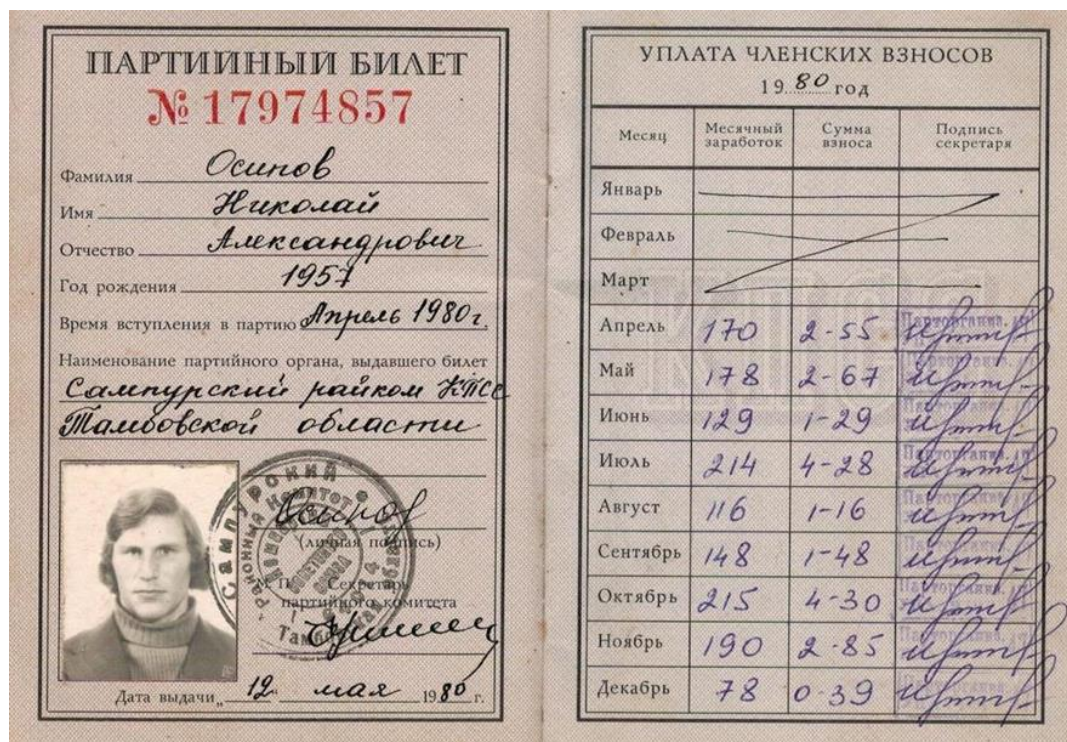 ПАРТИЙНЫЙ БИЛЕТ
№ 17974857
Фамилия Осипов
Имя Николай
Отчество Александрович
Год рождения 1957
Время вступления в партию Апрель 1980 г.
Наименование партийного органа, выдавшего билет
Сампурский райком КПСС
Тамбовской области
Осипов
(личная подпись)
М. П. Секретарь
партийного комитета
Дата выдачи „12" мая 1980 г.
УПЛАТА ЧЛЕНСКИХ ВЗНОСОВ
1980 год
Месяц Месячный заработок Сумма взноса Подпись секретаря
Январь
Февраль
Март
Апрель 170 2-55
Май 178 2-67
Июнь 129 1-29
Июль 214 4-28
Август 116 1-16
Сентябрь 148 1-48
Октябрь 215 4-30
Ноябрь 190 2-85
Декабрь 78 0-39